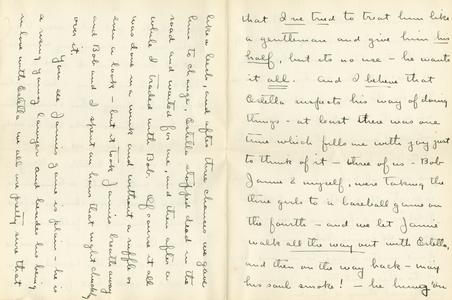 that I've tried to treat him like
a gentleman and give him his
half, but its no use – he wants
it all. And I believe that
Estella suspects his way of doing
things – at least there was one
time which fills me with joy just
to think of it – three of us – Bob
Jamie & myself, were taking the
three girls to a baseball game on
the fourth – and we let Jamie
walk all the way out with Estella,
and then on the way back – may
his soul smoke! – he hung on
like a leech, and after three chances we gave
him to change, Estella stopped dead in the
road and waited for me, and then after a
while I traded with Bob. Of course it all
was done in a wink and without a ruffle or
even a look – but it took Jamie's breath away
and Bob and I spent an hour that night chuckling
over it.
You see Jamie's game is plain – he is
a rising young lawyer and besides his being
in love with Estella we all are pretty sure that